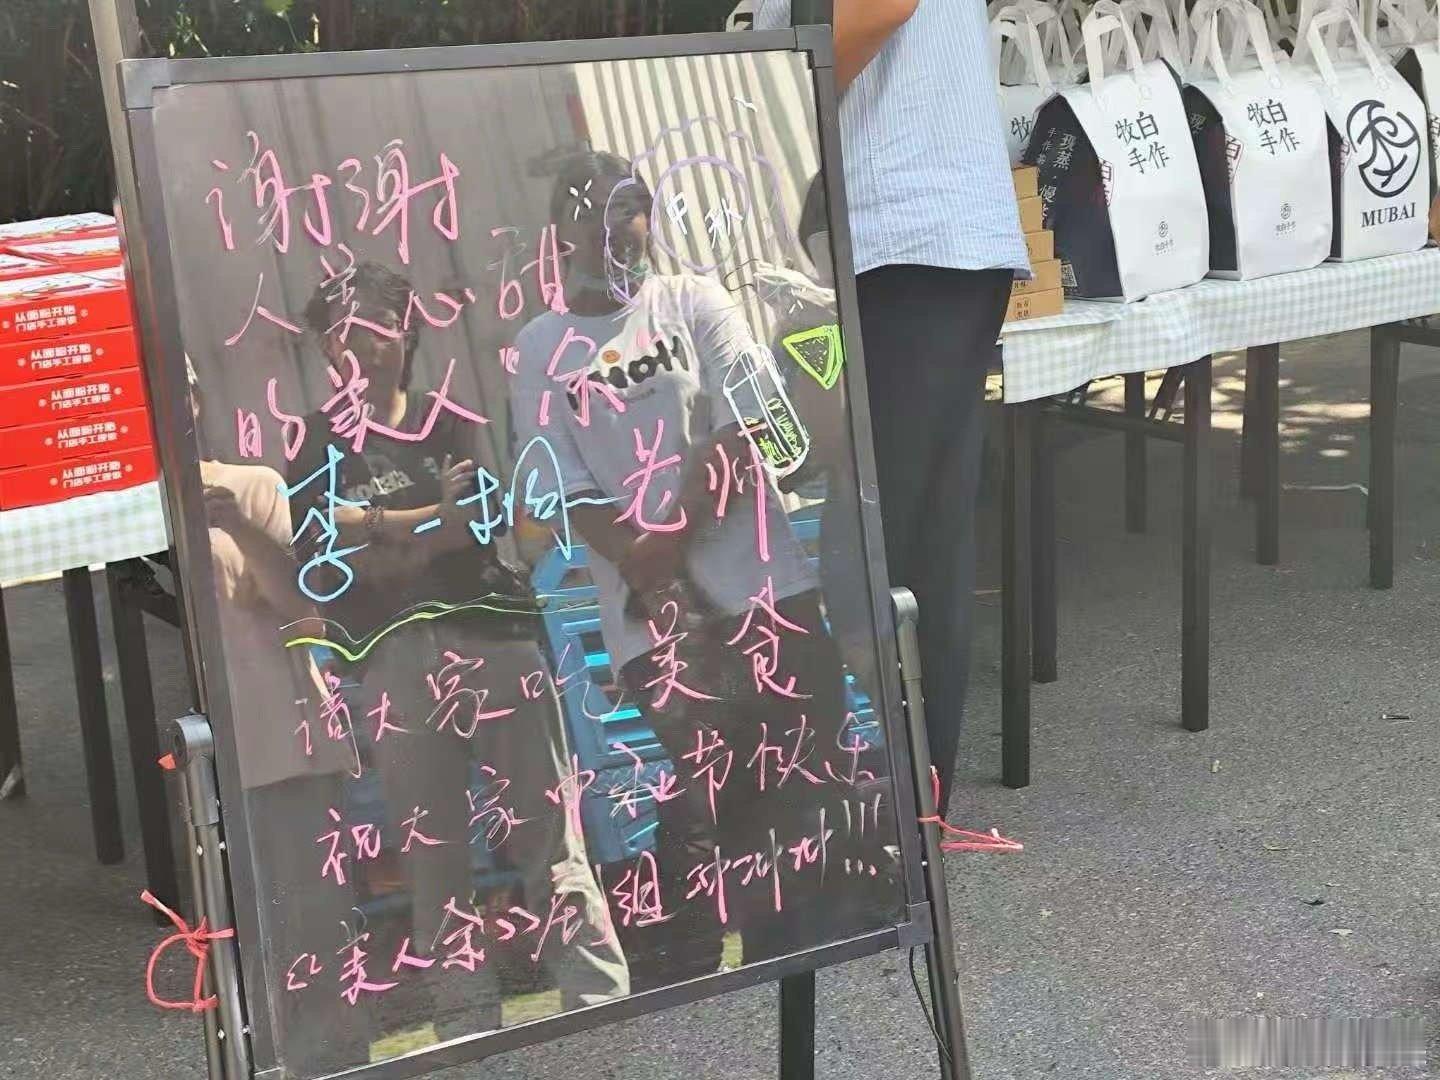 谢谢
中秋
人美心甜
的美人"余"
李一桐老师
请大家吃美食
祝大家中秋节快乐
《美人余》剧组冲冲冲!!!
从面粉开始
门店手工现做
从面粉开始
门店手工现做
从面粉开始
门店手工现做
从面粉开始
门店手工现做
从面粉开始
门店手工现做
牧白
手作
现蒸
手作
牧白
手作
牧白手作
MUBAI